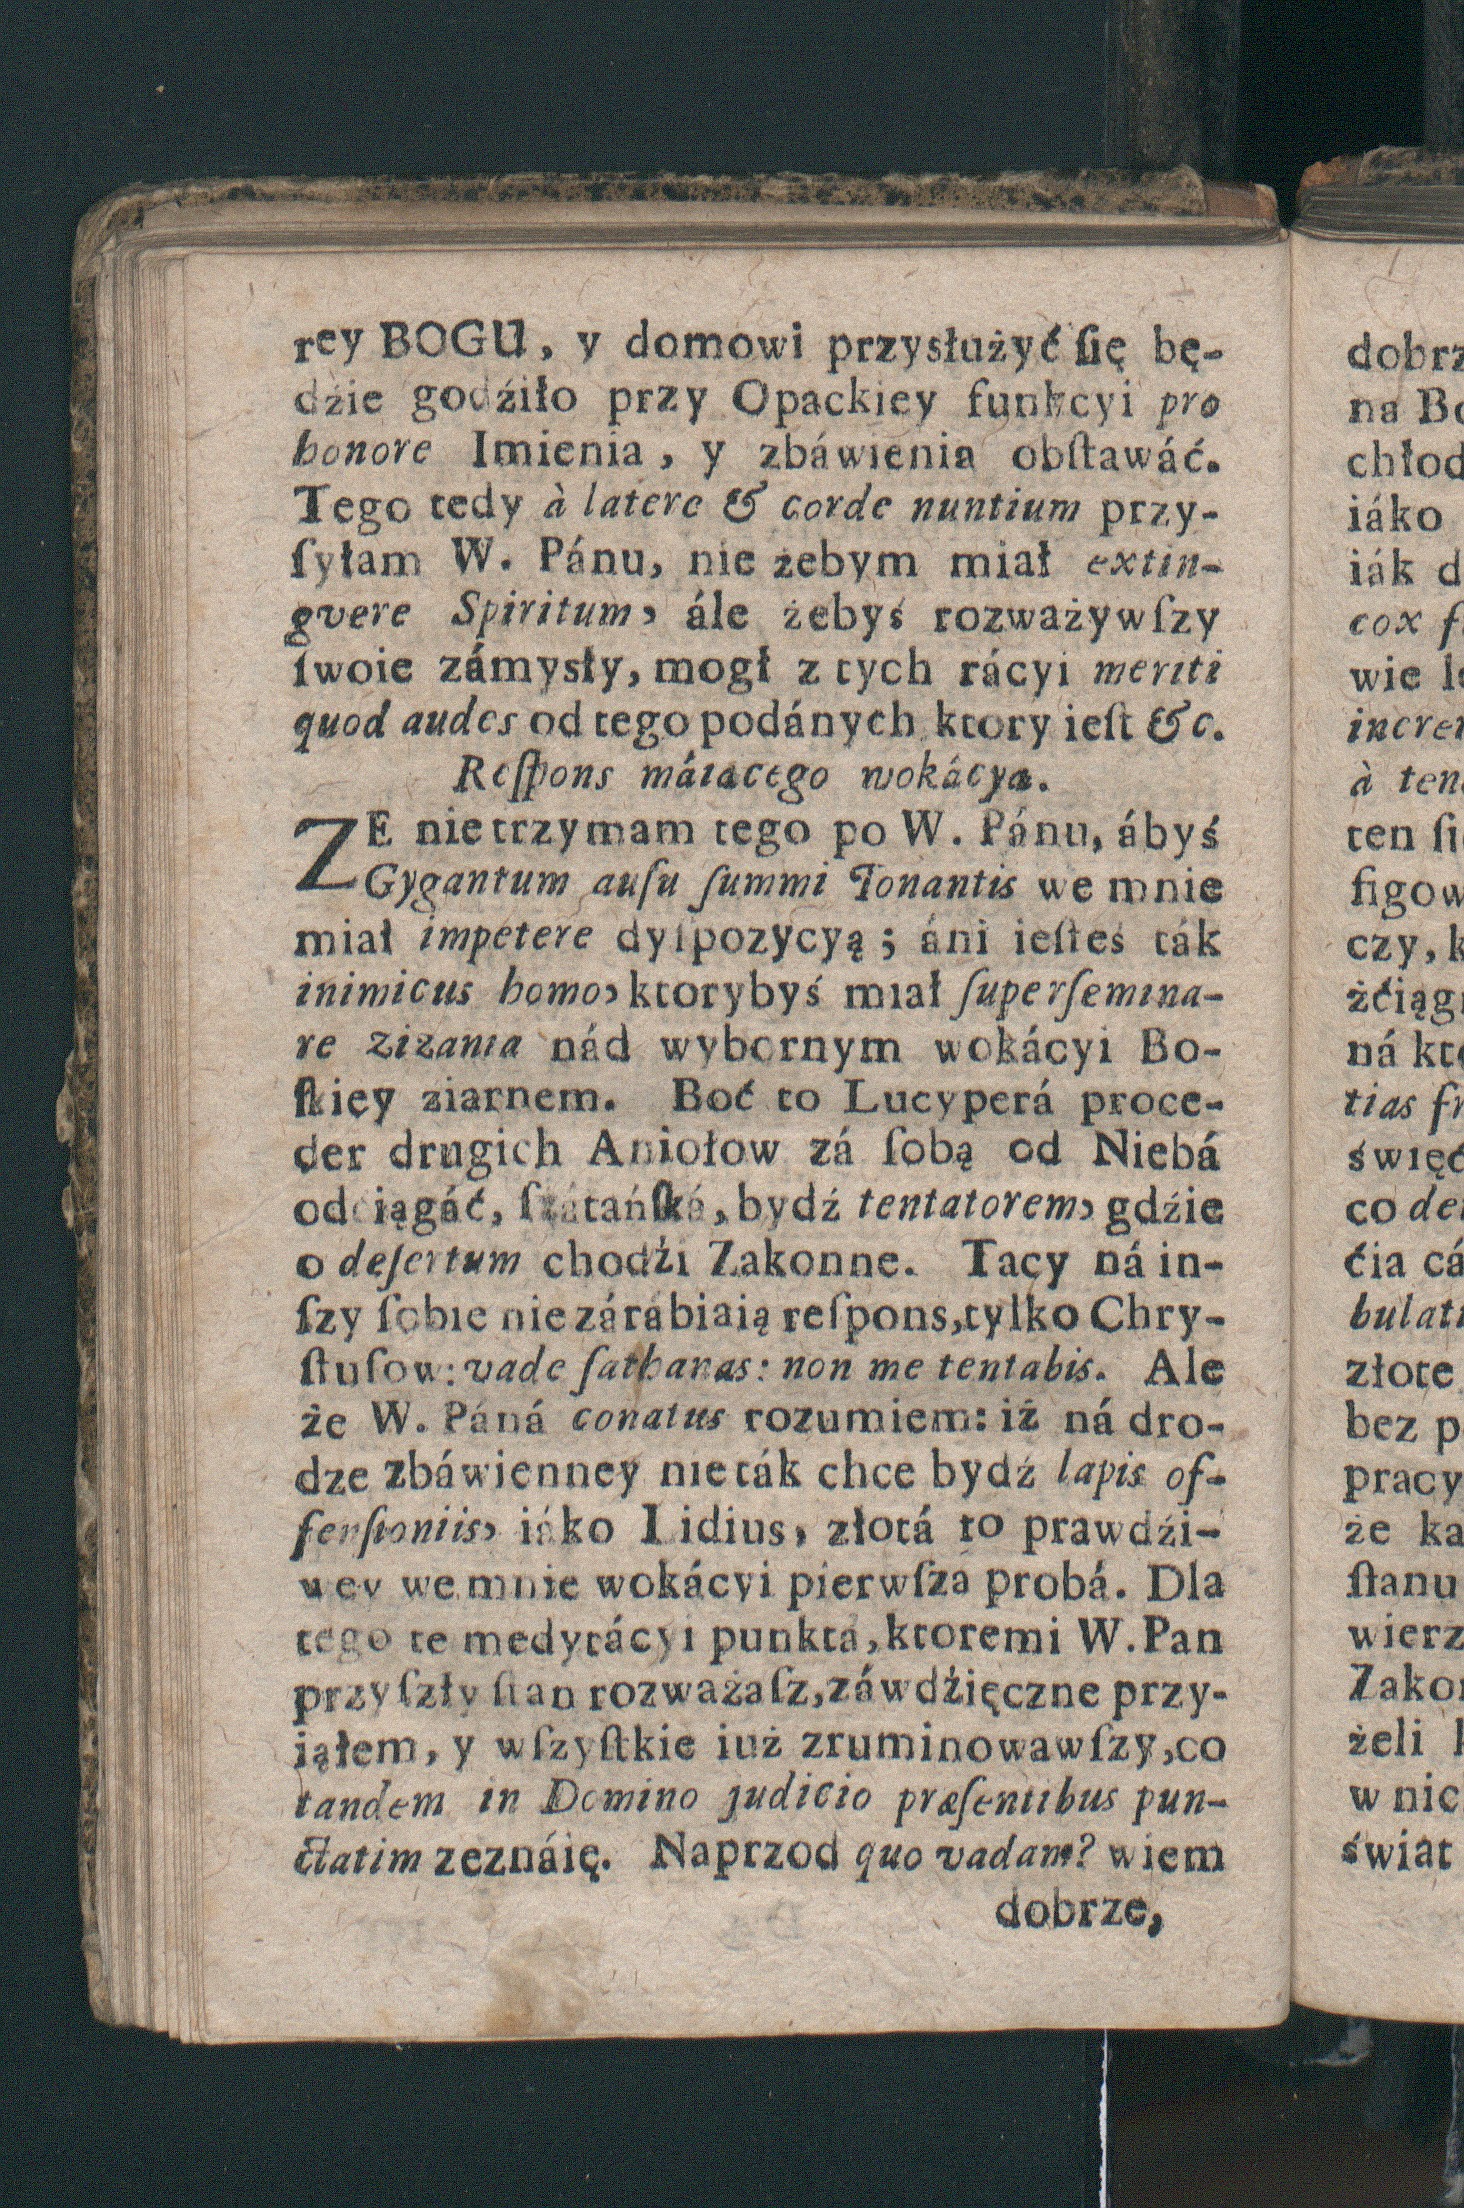 rey BOGU, y domowi przysłużyć ſię bę-
dźie godźiło przy Opackiey funkcyi pro
honore Imienia, y zbáwienia obſtawáć.
Tego tedy à latere & corde nuntium przy-
ſyłam W. Pánu, nie żebym miał extin-
gvere Spiritum, ále żebyś rozważywſzy
ſwoie zámysły, mogł z tych rácyi meriti
quod audes od tego podánych ktory ieſt &c.
Reſpons máiącego wokácyą.
ZE nie trzymam tego po W. Pánu, ábyś
Gygantum auſu ſummi Tonantis we mnie
miał impetere dyſpozycyą; áni ieſteś ták
inimicus homo, ktorybyś miał ſuperſemina-
re zizania nád wybornym wokácyi Bo-
ſkiey ziarnem. Boć to Lucyperá proce-
der drugich Aniołow zá ſobą od Niebá
odciągáć, ſzátáńſká, bydź tentatorem, gdźie
o deſertum chodźi Zakonne. Tacy ná in-
ſzy ſobie nie zárábiaią reſpons, tylko Chry-
ſtuſow: vade ſathanas: non me tentabis. Ale
że W. Páná conatus rozumiem: iż ná dro-
dze zbáwienney nie ták chce bydź lapis of-
fenſioniis, iáko Lidius, złotá to prawdźi-
wey we mnie wokácyi pierwſza probá. Dla
tego te medytácyi punktá, ktoremi W. Pan
przyſzły ſtan rozważaſz, záwdźięczne przy-
iąłem, y wſzyſtkie iuż zruminowawſzy, co
tandem in Domino judicio præſentibus pun-
ctatim zeznáię. Naprzod quo vadam? wiem
dobrze,
dobrz
na Bo
chłod
iáko
iák d
cox
wie
increm
à ten
ten
figow
czy, k
żćiąg
ná kto
tias
święć
co
ćia cá
bulati
złote
bez p
pracy
że ka
ſtanu
wierz
Zakon
żeli
w nic
świat